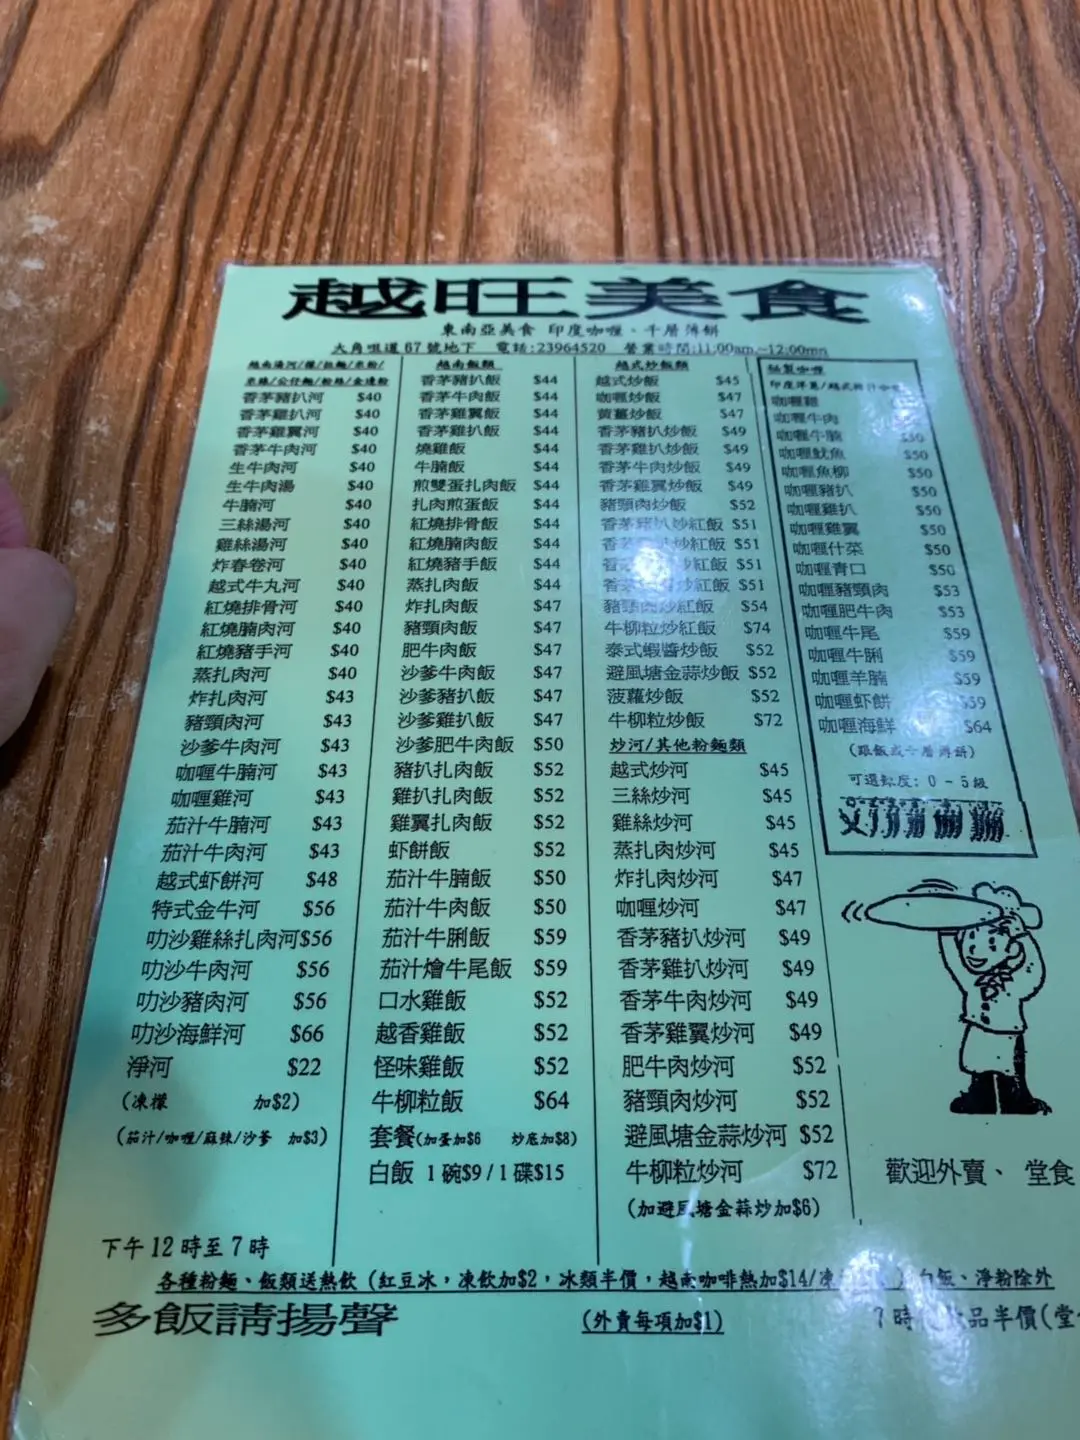 越旺美食
東南亞美食 印度咖喱、千層薄餅
大角咀道 67 號地下 電話:23964520 營業時間:11:00am.~12:00mn
香茅豬扒河 $40
香茅雞扒河 $40
香茅雞翼河 $40
香茅牛肉河 $40
生牛肉河 $40
生牛肉湯 $40
牛腩河 $40
三絲湯河 $40
雞絲湯河 $40
炸春卷河 $40
越式牛丸河 $40
紅燒排骨河 $40
紅燒腩肉河 $40
紅燒豬手河 $40
蒸扎肉河 $40
炸扎肉河 $43
豬頸肉河 $43
沙爹牛肉河 $43
咖喱牛腩河 $43
咖喱雞河 $43
茄汁牛腩河 $43
茄汁牛肉河 $43
越式虾餅河 $48
特式金牛河 $56
叻沙雞絲扎肉河$56
叻沙牛肉河 $56
叻沙豬肉河 $56
叻沙海鮮河 $66
淨河 $22
(凍檬 加$2)
(茄汁/咖喱/麻辣/沙爹 加$3)
越南飯類
香茅豬扒飯 $44
香茅牛肉飯 $44
香茅雞翼飯 $44
香茅雞扒飯 $44
燒雞飯 $44
牛腩飯 $44
煎雙蛋扎肉飯 $44
扎肉煎蛋飯 $44
紅燒排骨飯 $44
紅燒腩肉飯 $44
紅燒豬手飯 $44
蒸扎肉飯 $44
炸扎肉飯 $47
豬頸肉飯 $47
肥牛肉飯 $47
沙爹牛肉飯 $47
沙爹豬扒飯 $47
沙爹雞扒飯 $47
沙爹肥牛肉飯 $50
豬扒扎肉飯 $52
雞扒扎肉飯 $52
雞翼扎肉飯 $52
虾餅飯 $52
茄汁牛腩飯 $50
茄汁牛肉飯 $50
茄汁牛脷飯 $59
茄汁燴牛尾飯 $59
口水雞飯 $52
越香雞飯 $52
怪味雞飯 $52
牛柳粒飯 $64
套餐(加蛋加$6 炒底加$8)
白飯 1 碗$9 / 1 碟$15
越式炒飯類
越式炒飯 $45
咖喱炒飯 $47
黃薑炒飯 $47
香茅豬扒炒飯 $49
香茅雞扒炒飯 $49
香茅牛肉炒飯 $49
香茅雞翼炒飯 $49
豬頸肉炒飯 $52
香茅豬扒炒紅飯 $51
炒紅飯 $51
炒紅飯 $51
炒紅飯 $51
豬頸肉炒紅飯 $54
牛柳粒炒紅飯 $74
泰式蝦醬炒飯 $52
避風塘金蒜炒飯 $52
菠蘿炒飯 $52
牛柳粒炒飯 $72
炒河/其他粉麵類
越式炒河 $45
三絲炒河 $45
雞絲炒河 $45
蒸扎肉炒河 $45
炸扎肉炒河 $47
咖喱炒河 $47
香茅豬扒炒河 $49
香茅雞扒炒河 $49
香茅牛肉炒河 $49
香茅雞翼炒河 $49
肥牛肉炒河 $52
豬頸肉炒河 $52
避風塘金蒜炒河 $52
牛柳粒炒河 $72
(加避風塘金蒜炒加$6)
咖喱雞
咖喱牛肉
咖喱牛腩 $50
咖喱魷魚 $50
咖喱魚柳 $50
咖喱豬扒 $50
咖喱雞扒 $50
咖喱雞翼 $50
咖喱什菜 $50
咖喱青口 $50
咖喱豬頸肉 $53
咖喱肥牛肉 $53
咖喱牛尾 $59
咖喱牛脷 $59
咖喱羊腩 $59
咖喱虾餅 $59
咖喱海鮮 $64
(跟飯或千層薄餅)
可選辣度: 0 - 5 級
歡迎外賣、 堂食
下午 12 時至 7 時
各種粉麵、飯類送熱飲 (紅豆冰，凍飲加$2，冰類半價，越南咖啡熱加$14/凍 白飯、淨粉除外
多飯請揚聲 (外賣每項加$1) 7 時 品半價(堂